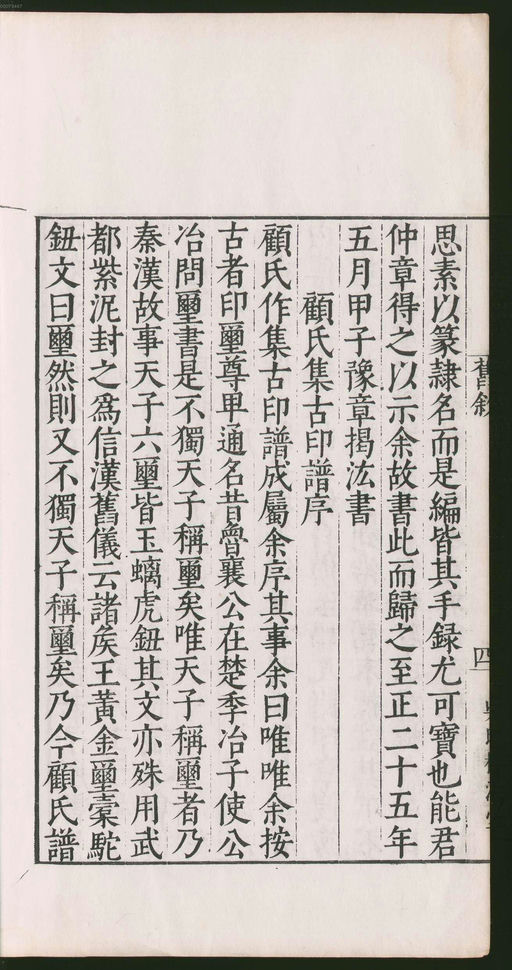 舊敘
四
思素以篆隷名而是編皆其手録尤可寶也能君
仲章得之以示余故書此而歸之至正二十五年
五月甲子豫章揭汯書
顧氏集古印譜序
顧氏作集古印譜成屬余序其事余曰唯唯余按
古者印璽尊卑通名昔魯襄公在楚季冶子使公
冶問璽書是不獨天子稱璽矣唯天子稱璽者乃
秦漢故事天子六璽皆玉螭虎鈕其文亦殊用武
都紫泥封之爲信漢舊儀云諸矦王黃金璽槖駝
鈕文曰璽然則又不獨天子稱璽矣乃今顧氏譜